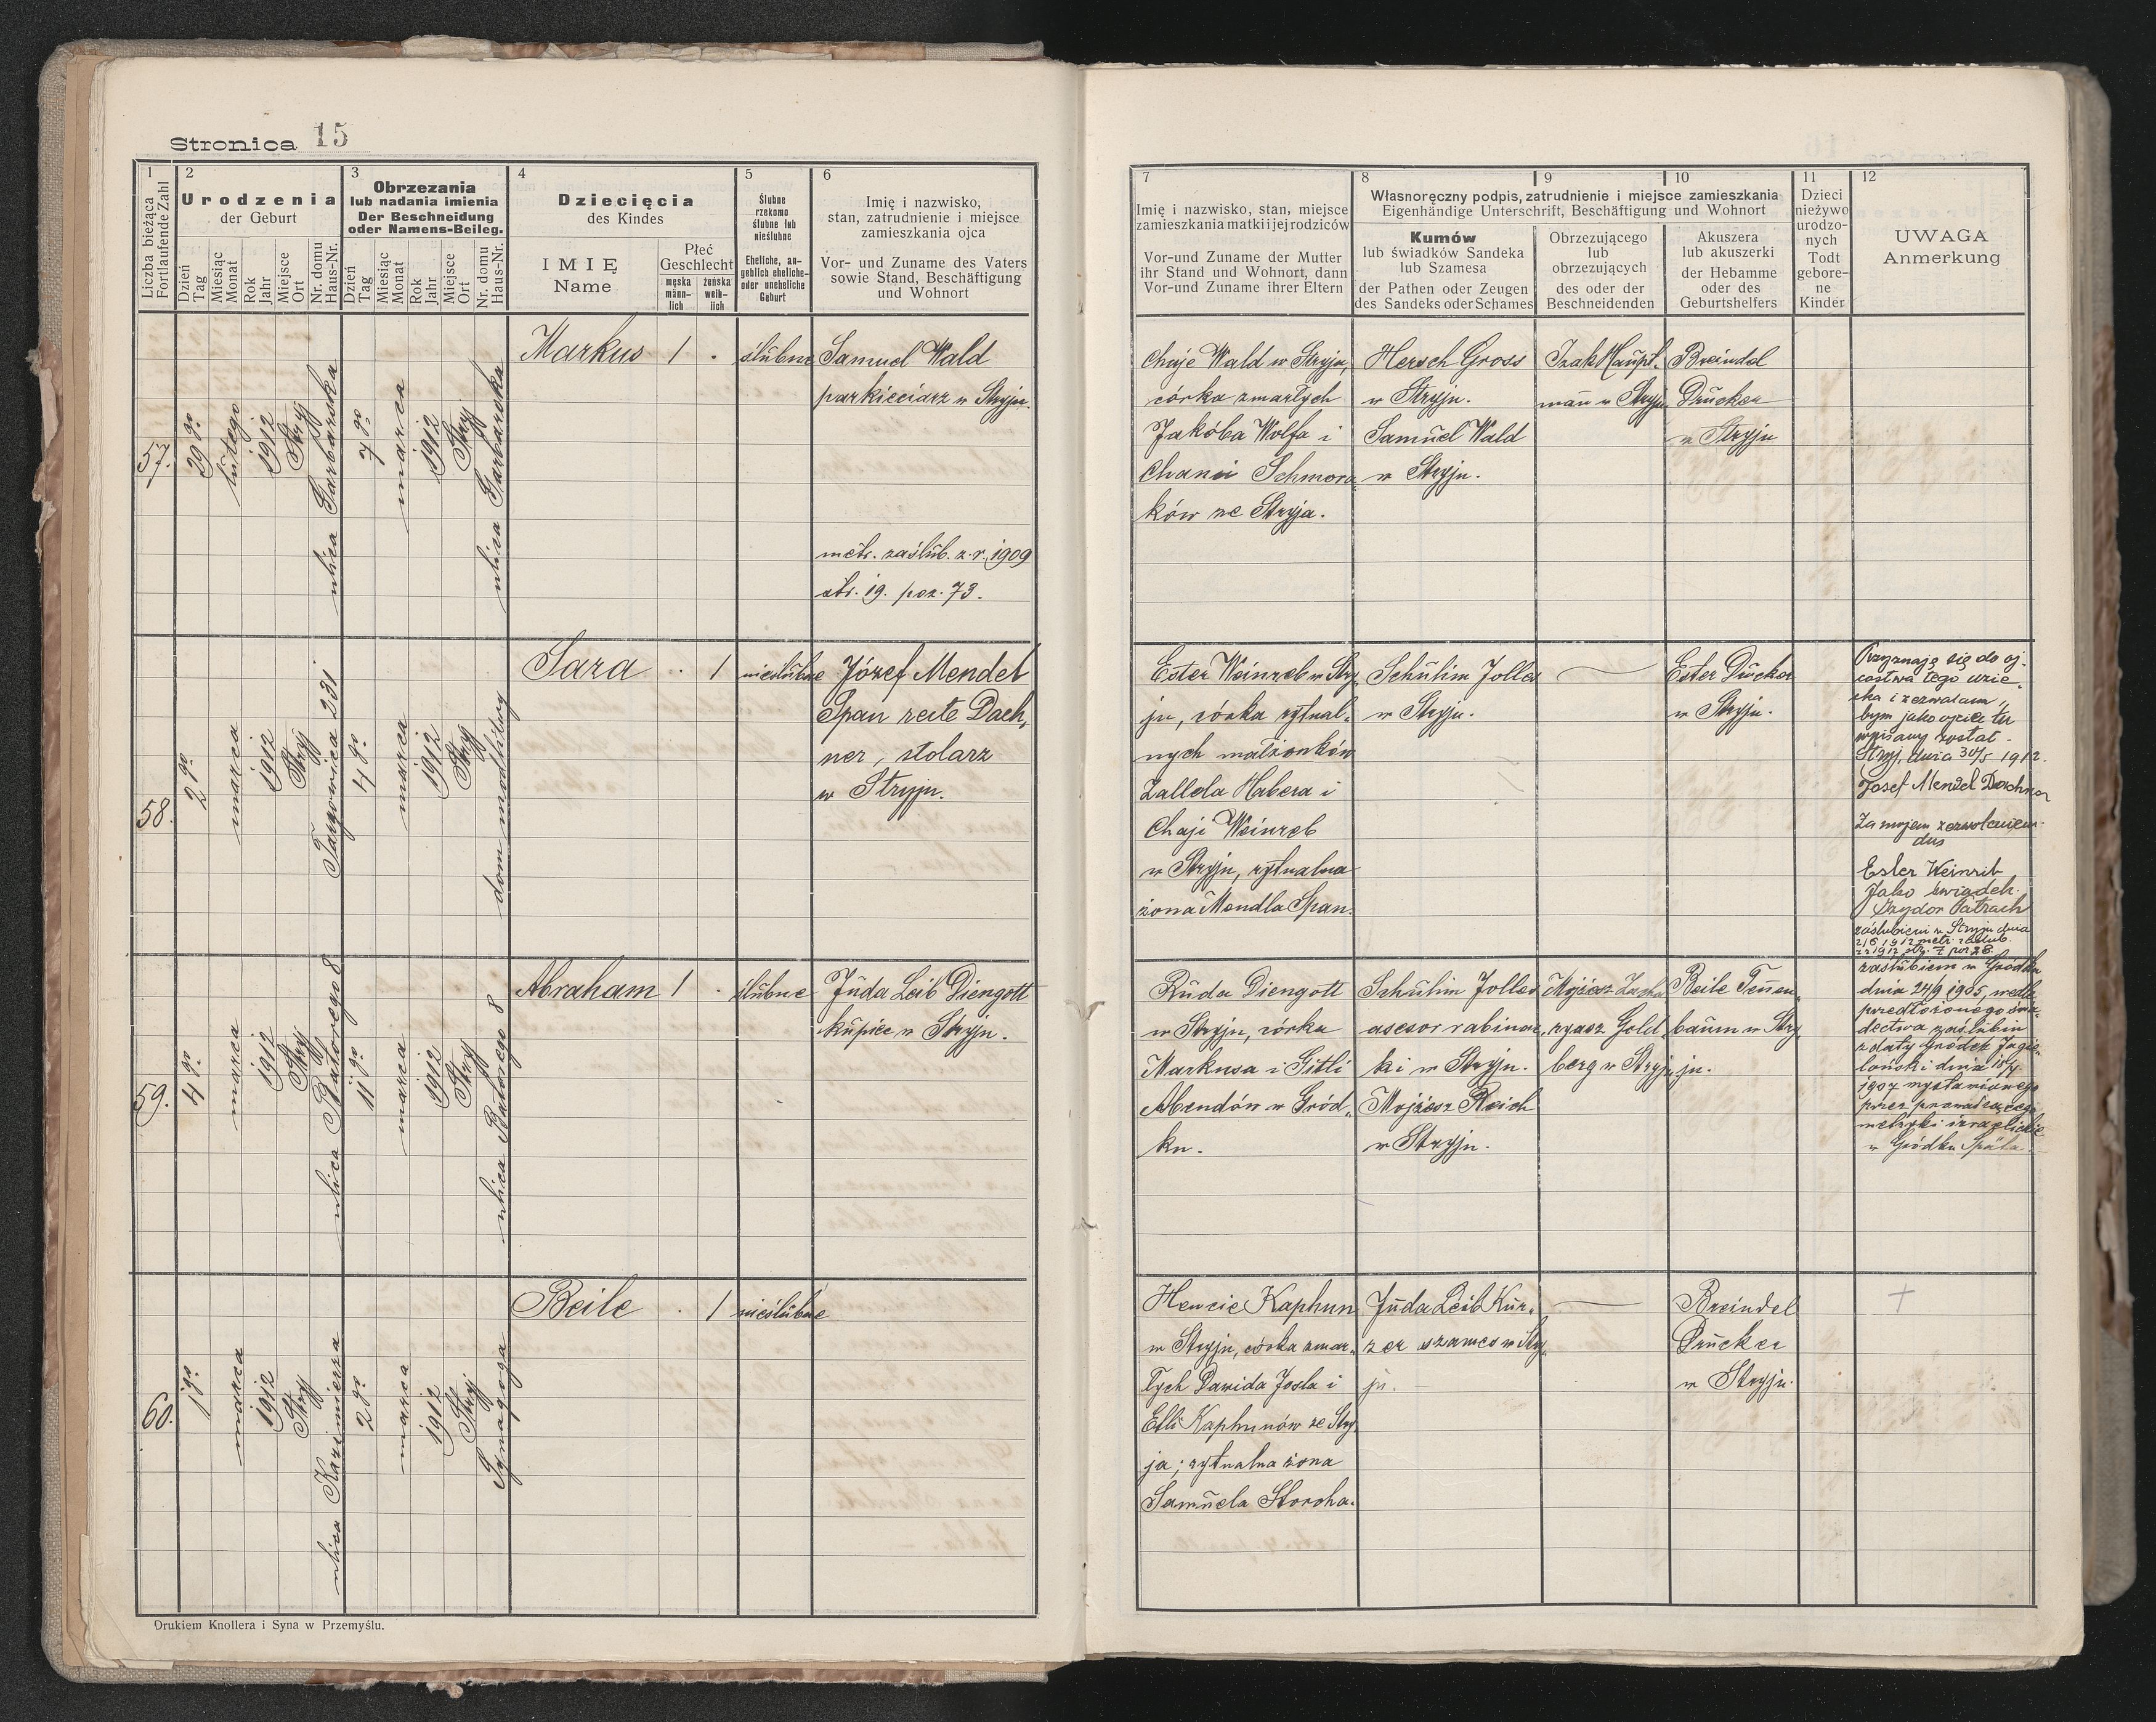 Stronica 15
1
Liczba bieżąca
Fortlaufende Zahl
2
Urodzenia
der Geburt
Dzień
Tag
Miesiąc
Monat
Rok
Jahr
Miejsce
Ort
Nr. domu
Haus-Nr.
3
Obrzezania
lub nadania imienia
Der Beschneidung
oder Namens-Beileg.
Dzień
Tag
Miesiąc
Monat
Rok
Jahr
Miejsce
Ort
Nr. domu
Haus-Nr.
4
Dziecięcia
des Kindes
IMIĘ
Name
Płeć
Geschlecht
męska
männ-
lich
żeńska
weib-
lich
5
Ślubne
rzekomo
ślubne lub
nieślubne
Eheliche, an-
geblich eheliche-
oder uneheliche
Geburt
6
Imię i nazwisko,
stan, zatrudnienie i miejsce
zamieszkania ojca
Vor- und Zuname des Vaters
sowie Stand, Beschäftigung
und Wohnort
7
Imię i nazwisko, stan, miejsce
zamieszkania matki i jej rodziców
Vor-und Zuname der Mutter
ihr Stand und Wohnort, dann
Vor-und Zuname ihrer Eltern
8
9
10
Własnoręczny podpis, zatrudnienie i miejsce zamieszkania
Eigenhändige Unterschrift, Beschäftigung und Wohnort
Kumów
lub świadków Sandeka
lub Szamesa
der Pathen oder Zeugen
des Sandeks oder Schames
Obrzezującego
lub
obrzezujących
des oder der
Beschneidenden
Akuszera
lub akuszerki
der Hebamme
oder des
Geburtshelfers
11
Dzieci
nieżywo
urodzo-
nych
Todt
gebore-
ne
Kinder
12
UWAGA
Anmerkung
57.
29 go
lutego
1912
Stryj
ulica Garbarska
7 go
marca
1912
Stryj
ulica Garbarska
Markus
1
ślubne
Samuel Wald
parkieciarz w Stryju.
metr. zaślub. z r. 1909
str. 19. poz. 73.
Chaje Wald w Stryju,
córka zmarłych
Jakóba Wolfa i
Chani Schmora-
ków ze Stryja.
Hersch Gross
w Stryju.
Samuel Wald
w Stryju.
Izak Haupt-
man w Stryju
Breindel
Drucker
w Stryju
58.
2 go
marca
1912
Stryj
Targowica 231
4 go
marca
1912
Stryj
dom modlitwy
Sara
1
nieślubne
Józef Mendel
Span recte Dach-
ner, stolarz
w Stryju.
Ester Weinreb w Stry-
ju, córka rytual-
nych małżonków
Zallela Habera i
Chaji Weinreb
w Stryju, rytualna
żona Mendla Span.
Schulim Joller
w Stryju.
Ester Drucker
w Stryju.
Przyznaję się do oj-
costwa tego dzie-
cka i zezwalam,
bym jako ojciec tu
wpisany został.
Stryj, dnia 30/5 1912.
Josef Mendel Dachner
Za mojem zezwoleniem
Ester Weinreb
Jako świadek
Izydor Patrach
zaślubieni w Stryju dnia
2/6 1912 metr. zaślub.
z r 1912 str. 7 poz 28
59.
4 go
marca
1912
Stryj
ulica Batorego 8
11 go
marca
1912
Stryj
ulica Batorego 8
Abraham
1
ślubne
Juda Leib Diengott
kupiec w Stryju.
Ruda Diengott
w Stryju, córka
Markusa i Gitli
Abendów w Gród-
ku.
Schulim Joller
asesor rabinac-
ki w Stryju.
Mojżesz Reich
w Stryju.
Mojżesz Zacha-
ryasz Gold-
berg w Stryju
Beile Tenen-
baum w Stry-
ju.
zaślubieni w Gródku
dnia 24/9 1905, wedle
przedłożonego świa-
dectwa zaślubin
z daty Gródek Jagie-
loński dnia
1907 wystawionego
przez prowadzącego
metryki izraelickie
w Gródku Späta
60.
1 go
marca
1912
Stryj
ulica Kazimierza
2 go
marca
1912
Stryj
Synagoga
Beile
1
nieślubne
Hencie Kaphun
w Stryju, córka zmar-
łych Dawida Josla i
Etli Kaphunów ze Stry-
ja; rytualna żona
Samuela Storcha.
Juda Leib Kur-
zer szames w Stry-
ju.
Breindel
Drucker
w Stryju.
Drukiem Knollera i Syna w Przemyślu.